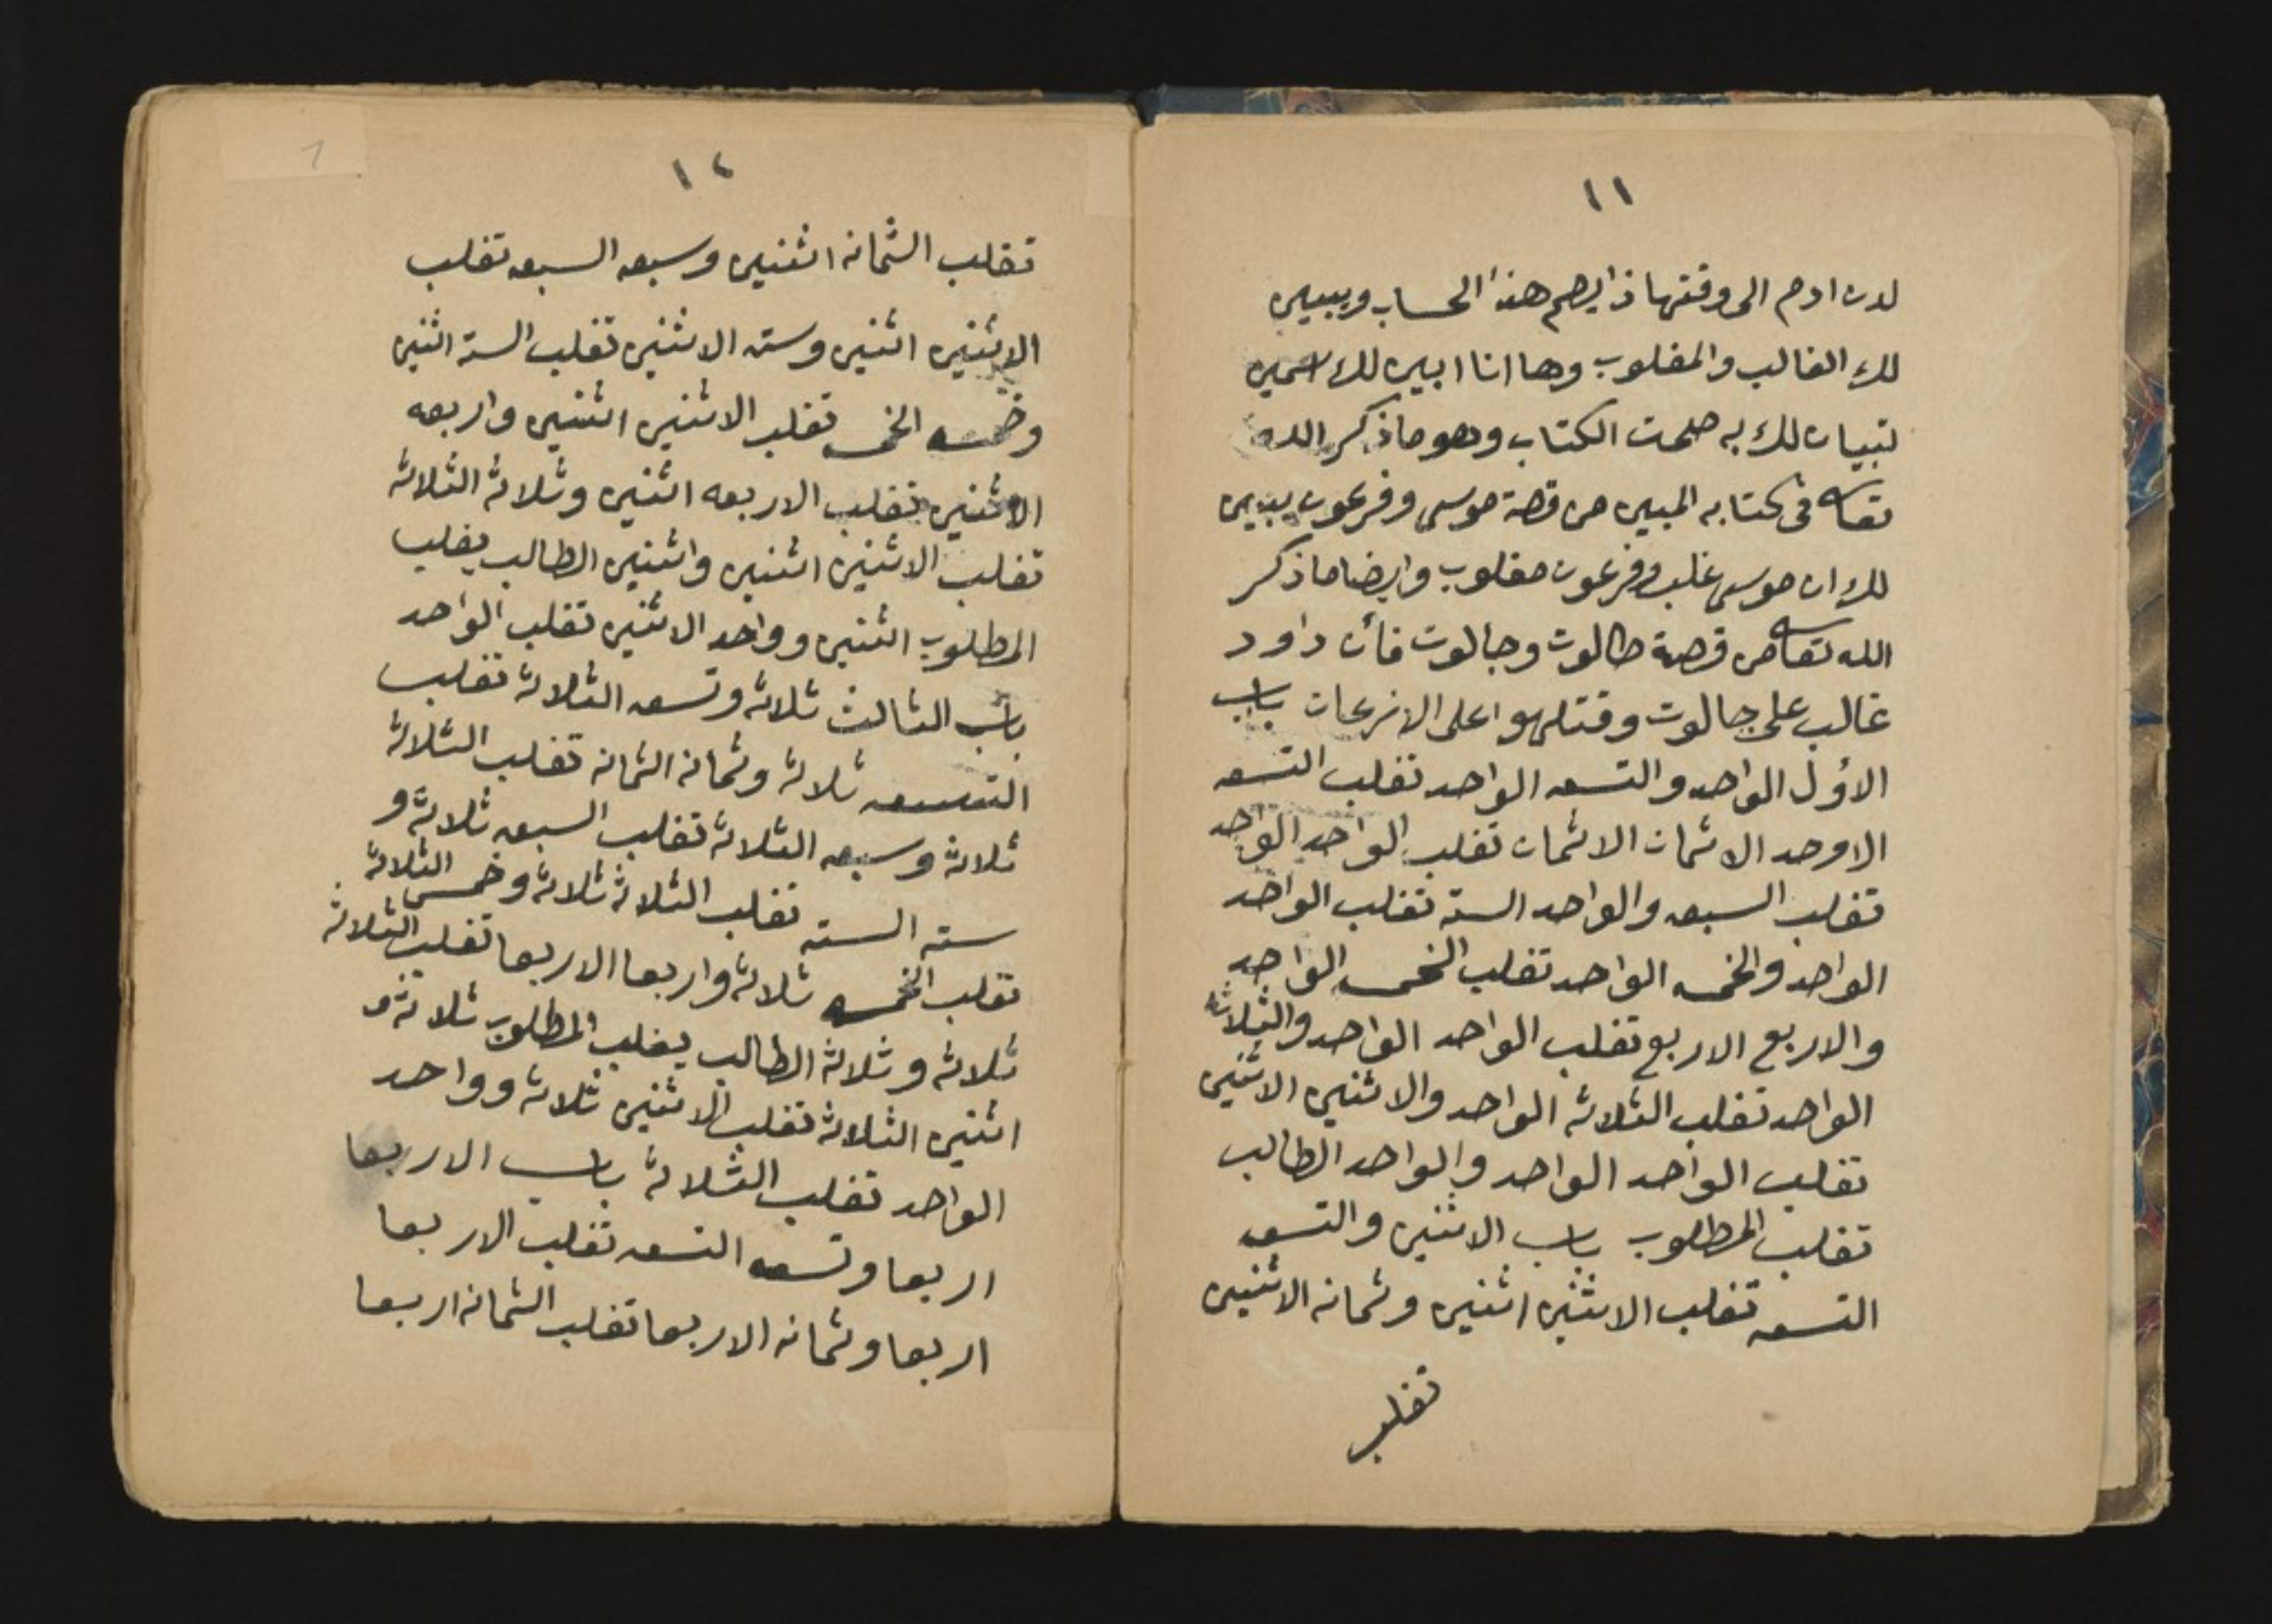 ١١
لدن ادم الى وقتها ذا يصح هذا الحساب ويبين
لك الغالب والمغلوب وها انا ابين لك اسمين
لتبيان لك به صحت الكتاب وهو ما ذكر الله
تعالى فى كتابه المبين من قصة موسى وفرعون يبين
لك ان موسى غلب وفرعون مغلوب وايضا ما ذكر
الله تعالى من قصة طالوت وجالوت فأن داود
غالب على جالوت وقتله وهو اعلى الانزعات باب
الاول الواحد والتسعه الواحد تغلب التسعه
الاوحد الاثمان الاثمان تغلب الواحد الواحد
تغلب السبعه والواحد الستة تغلب الواحد
الواحد والخمسه الواحد تغلب الخمسه الواحد
والاربع الاربع تغلب الواحد الواحد والثلاثه
الواحد تغلب الثلاثه الواحد والاثنين الاثنين
تغلب الواحد الواحد والواحد الطالب
تغلب المطلوب باب الاثنين والتسعه
التسعه تغلب الاثنين اثنين وثمانه الاثنين
تغلب
١٢
تغلب الثمانه اثنين وسبعه السبعه تغلب
الاثنين اثنين وسته الاثنين تغلب الستة اثنين
وخمسه الخمسه تغلب الاثنين اثنين واربعه
الاثنين تغلب الاربعه اثنين وثلاثة الثلاثة
تغلب الاثنين اثنين واثنين الطالب يغلب
المطلوب اثنين وواحد الاثنين تغلب الواحد
باب الثالث ثلاثة وتسعه الثلاثة تغلب
التسعه ثلاثة وثمانه الثمانه تغلب الثلاثة
ثلاثة وسبعه الثلاثة تغلب السبعه ثلاثة و
سته الستة تغلب الثلاثة ثلاثة وخمسه الثلاثة
تغلب الخمسه ثلاثة واربعا الاربعا تغلب الثلاثة
ثلاثة وثلاثة الطالب يغلب المطلوب ثلاثة و
اثنين الثلاثة تغلب الاثنين ثلاثة وواحد
الواحد تغلب الثلاثة باب الاربعا
اربعا وتسعه التسعه تغلب الاربعا
اربعا وثمانه الاربعا تغلب الثمانه اربعا